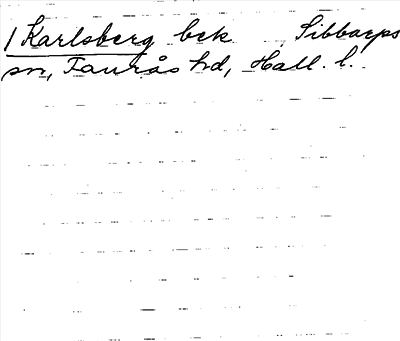 /Karlsberg bck Sibbarps
sn, Faurås hd, Hall. l.